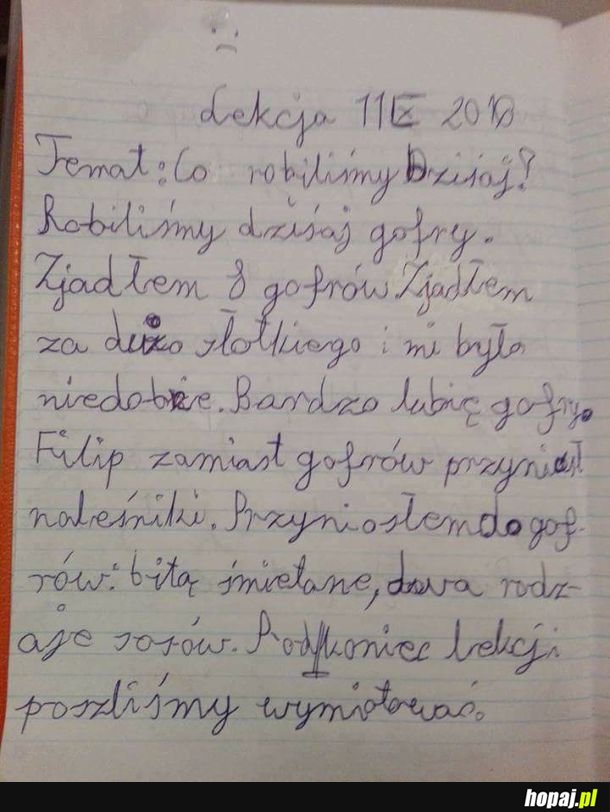 Lekcja 11 IX 2018
Temat: Co robiliśmy Dzisiaj?
Robiliśmy dzisiaj gofry.
Zjadłem 8 gofrów. Zjadłem
za dużo słotkiego i mi było
niedobrze. Bardzo lubię gofry.
Filip zamiast gofrów przyniusł
naleśniki. Przyniosłem do gof-
rów: bitą śmietane, dwa rodz-
aje sosów. Pod koniec lekcji
poszliśmy wymiotować.
hopaj.pl